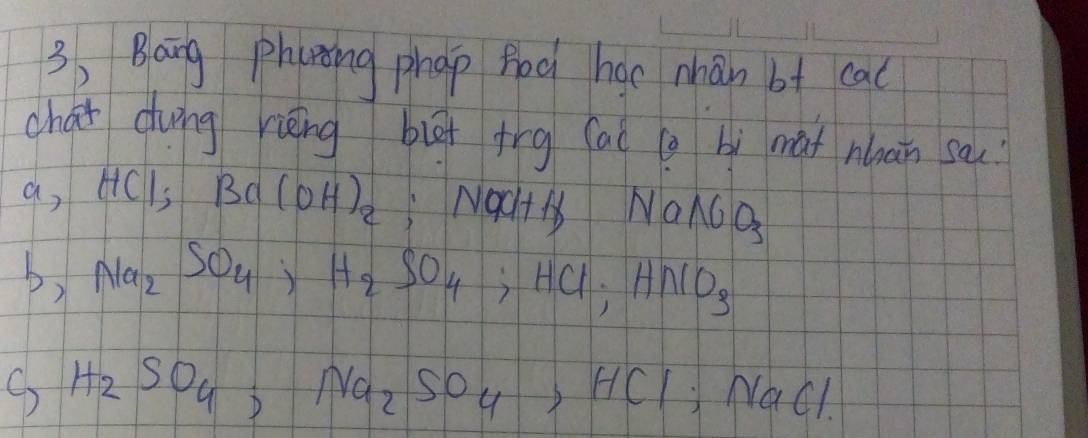 3, Bằng phương pháp hoá học nhận bt các
chất đựng riêng biệt trg các lọ bị mất nhãn sau:
a, HCl; Ba(OH)₂; NaNO₃
b, Na₂SO₄; H₂SO₄; HCl; HNO₃
c, H₂SO₄; Na₂SO₄; HCl; NaCl.